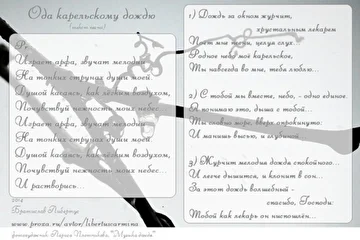 Ода карельскому дождю
Играет арфа, звучат мелодии
На тонких струнах души моей.
Душой касаясь, как лёгким воздухом,
Почувствуй нежность моих небес
Играет арфа, звучат мелодии
На тонких струнах души моей.
Душой касаясь, как лёгким воздухом,
Почувствуй нежность моих небес...
И растворись...
2014
www.proza.ru/avtor/libertuscarmina
1) Дождь за окном журчит,
хрустальным лекарем
Поёт мне песни, целуя слух.
Родное небо моё карельское,
Ты навсегда во мне, тебя люблю...
2) С тобой мы вместе, небо, - одно единое.
Я понимаю это, дыша с тобой...
Ты словно море, вверх опрокинутое:
И манишь высью, и глубиной...
3) Журчит мелодия дождя спокойного...
И легче дышится, и клонит в сон...
За этот дождь волшебный -
спасибо, Господи:
Тобой как лекарь он ниспослён...